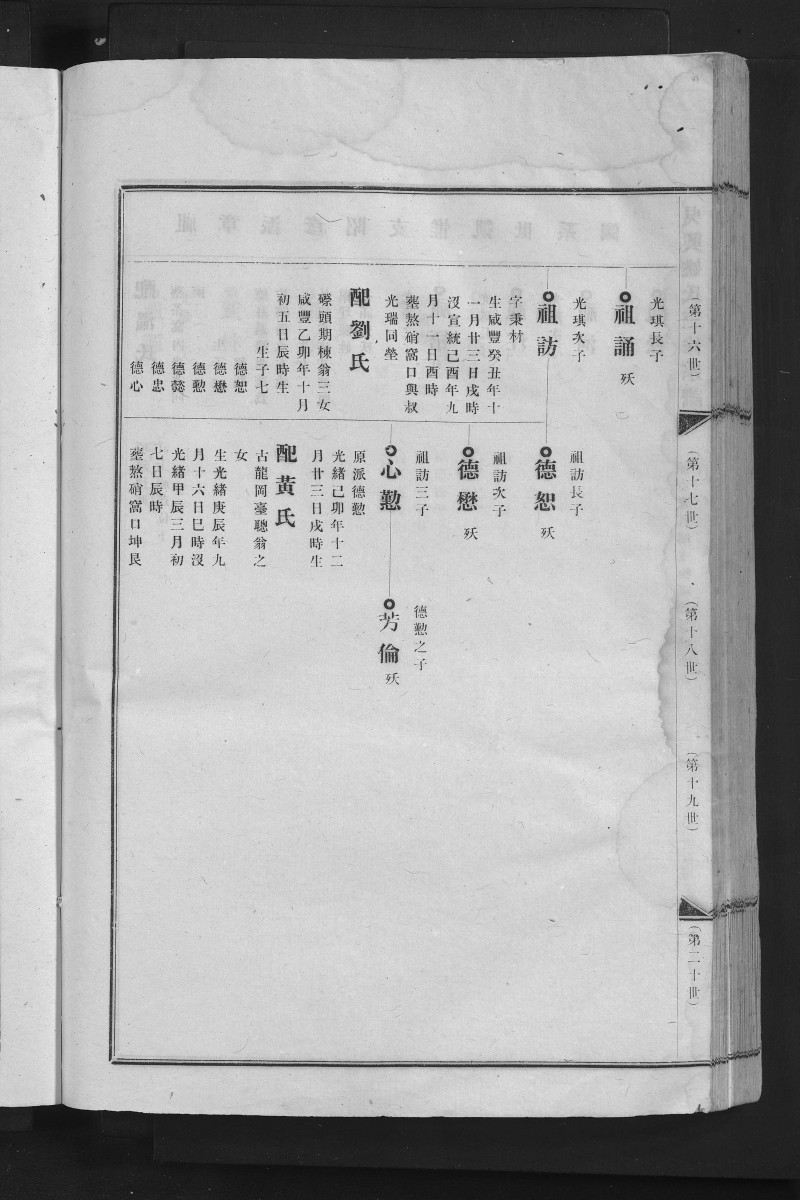 (第十六世)
光琪長子
祖誦 殀
光琪次子
祖訪
字秉材
生咸豐癸丑年十
一月廿三日戌時
沒宣統己酉年九
月十一日酉時
葬熬硝窩口與叔
光瑞同塋
配劉氏
磜頭期棟翁三女
咸豐乙卯年十月
初五日辰時生
生子七
德恕
德懋
德懃
德懿
德忠
德心
(第十七世)
祖訪長子
德恕 殀
祖訪次子
德懋 殀
祖訪三子
心懃
原派德懃
光緒己卯年十二
月廿三日戌時生
配黃氏
古龍岡臺聰翁之
女
生光緒庚辰年九
月十六日巳時沒
光緒甲辰三月初
七日辰時
葬熬硝窩口坤艮
(第十八世)
德懃之子
芳倫 殀
(第十九世)
(第二十世)